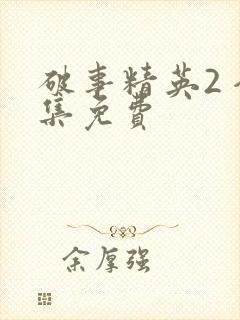 破事精英2
集免费
余厚强